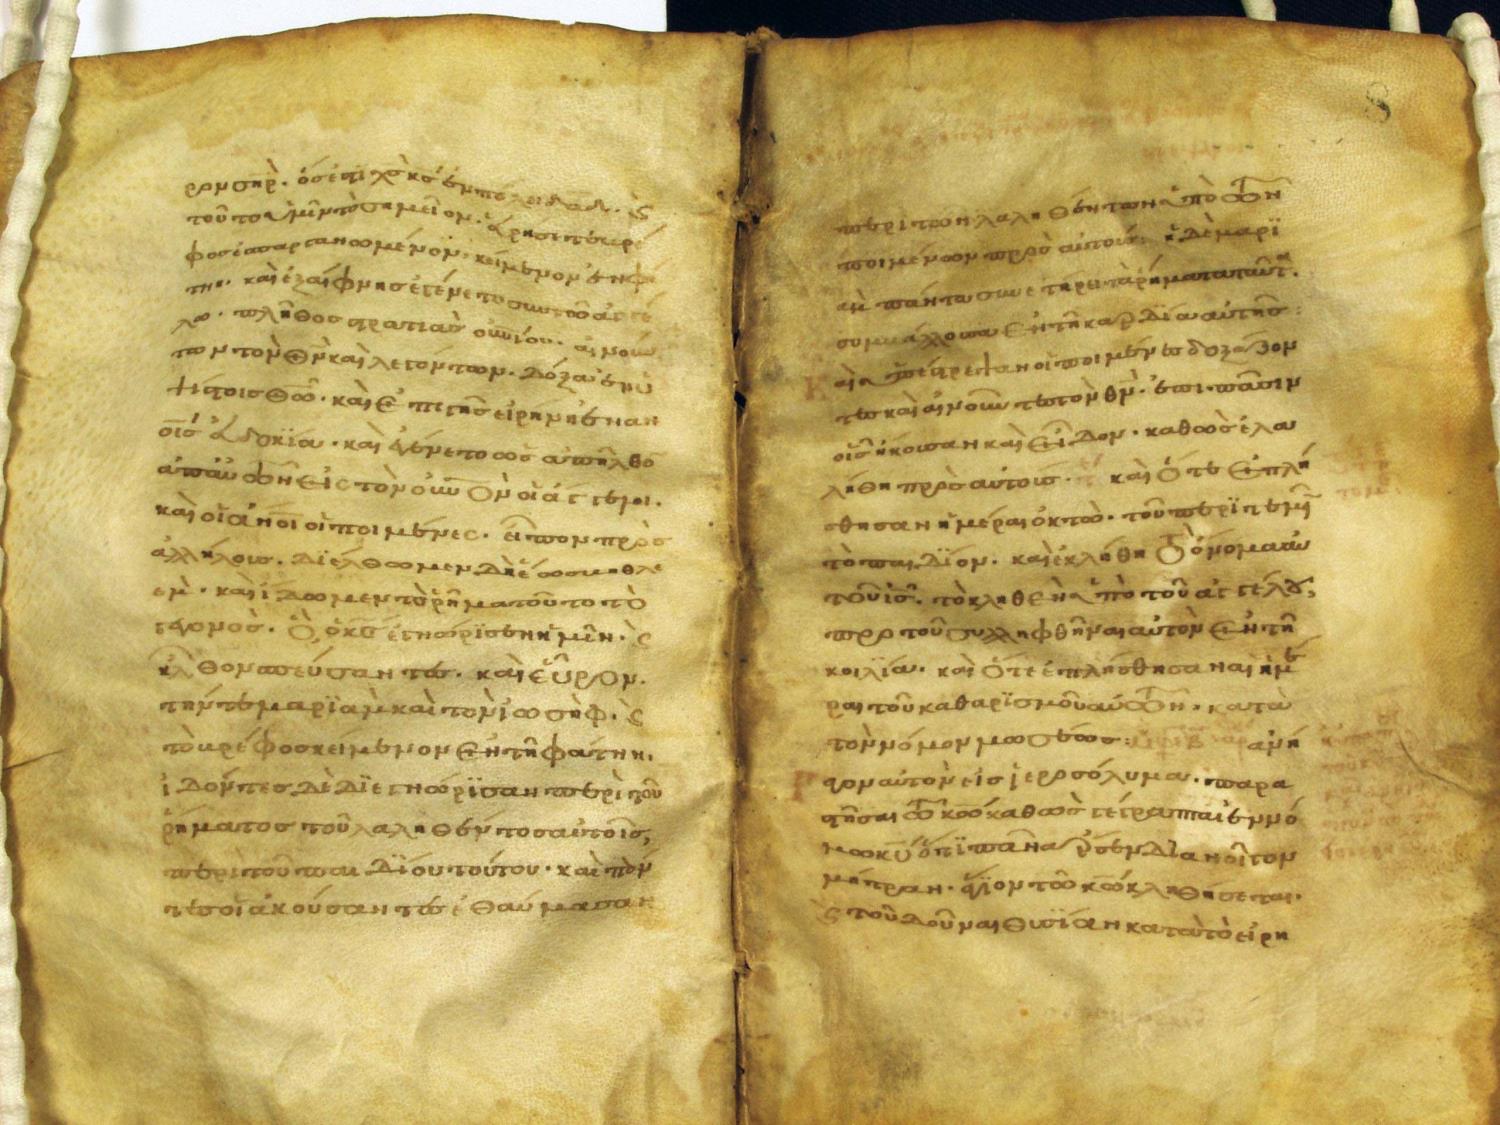 ρον σηρ. ὅς ἐστι χς κς ἐν πόλει δαδ. ϛ
τοῦτο ὑμῖν τὸ σημεῖον. εὑρήσετε βρέ
φος ἐσπαργανωμένον. κείμενον ἐν φά
τνη. καὶ ἐξαίφνης ἐγένετο σὺν τῶ ἀγγέ
λω. πλῆθος στρατιᾶς οὐνίου. αἰνούν
των τὸν θν καὶ λεγόντων. δόξα ἐν ὑ
ψίστοις θω. καὶ ἐπι γῆς εἰρήνη ἐν αν
οις εὐδοκΐα. καὶ ἐγένετο ὡς ἀπῆλθο
απ αυτῶν εἰς τὸν οὐνον οἱ ἄγγελοι.
καὶ οἱ ανοι οἱ ποιμένες. εἶπον πρὸς
ἀλλήλοις. διέλθωμεν δὴ ἕως βηθλε
ὲμ. καὶ ἴδωμεν τὸ ῥῆμα τοῦτο τὸ
γεγονός. ὃ ὁ κς ἐγνώρϊσεν ἡμῖν. ϛ
ἦλθον σπεύσαντες. καὶ εὗρον.
τήν τε μαρϊὰμ καὶ τὸν ἰωσὴφ. ϛ
τὸ βρέφος κείμενον ἐν τῆ φάτνη.
ἰδόντες δὲ δϊεγνώρϊσαν περὶ τοῦ
ῥήματος τοῦ λαληθέντος αὐτοῖς,
περὶ τοῦ παιδΐου τούτου. καὶ πάν
τες οἱ ἀκούσαντες ἐθαύμασαν
περὶ τῶν λαληθέντων ὑπὸ των
ποιμένων πρὸς αὐτούς. ἡ δὲ μαρϊ
ὰμ πάντα συνετήρει τὰ ῥήματα ταῦτα.
συμβάλλουσα ἐν τῆ καρδΐα αὐτῆς:
καὶ ὑπέστρεψαν οἱ ποιμένες δοξάζον
τες καὶ αἰνοῦντες τὸν θν. ἐπι πᾶσιν
οἷς ἤκουσαν καὶ εἶδον. καθὼς ἐλα
λήθη πρὸς αὐτούς. καὶ ὅτε ἐπλή
σθησαν ἡμέραι ὀκτὼ. τοῦ περϊτεμεῖν
τὸ παιδΐον. καὶ ἐκλήθη τὸ ὄνομα αὐ
τοῦ ις. τὸ κληθὲν ὑπὸ τοῦ ἀγγέλου,
πρὸ τοῦ συλληφθῆναι αὐτὸν ἐν τῆ
κοιλΐα. καὶ ὅτε ἐπλήσθησαν αἱ ἡμέ
ραι τοῦ καθαρϊσμοῦ αὐτῶν. κατὰ
τὸν νόμον μωσέως: ἀνή
γαγον αὐτὸν εἰς ἱεροσόλυμα. παρα
στῆσαι τῶ κω καθὼς γέγραπται ἐν νό
μω κυ ὅτι πᾶν ἄρσεν διανοῖγον
μήτραν. ἅγϊον τῶ κω κληθήσεται.
ϛ τοῦ δοῦναι θυσΐαν κατὰ τὸ εἰρη